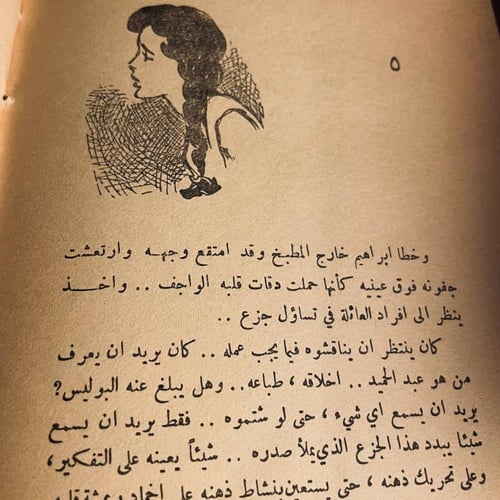 ٥
وخطا ابراهيم خارج المطبخ وقد امتقع وجهه وارتعشت
جفونه فوق عينيه كأنها حملت دقات قلبه الواجف .. واخذ
ينظر الى افراد العائلة في تساؤل جزع ..
كان ينتظر ان يناقشوه فيما يجب عمله .. كان يريد ان يعرف
من هو عبد الحميد .. اخلاقه ، طباعه .. وهل يبلغ عنه البوليس؟
يريد ان يسمع اي شيء ، حتى لو شتموه .. فقط يريد ان يسمع
شيئا يبدد هذا الجزع الذي يملأ صدره .. شيئاً يعينه على التفكير ،
وعلى تحريك ذهنه ، حتى يستعين بنشاط ذهنه على اخماد